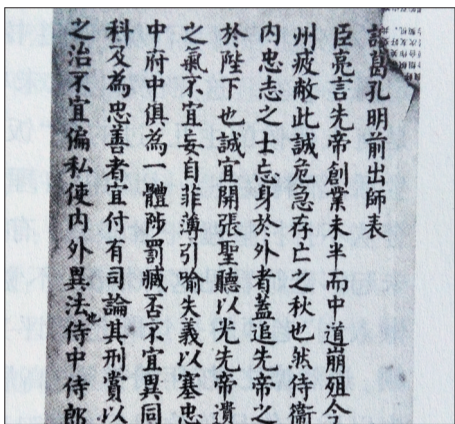 諸葛孔明前出師表
臣亮言先帝創業未半而中道崩殂今
州疲敝此誠危急存亡之秋也然待衞
内忠志之士忘身於外者蓋追先帝之
於陛下也誠宜開張聖聽以光先帝遺
之氣不宜妄自菲薄引喻失義以塞忠
中府中俱為一體陟罰臧否不宜異同
科及為忠善者宜付有司論其刑賞以
之治不宜偏私使内外異法也侍中侍郎